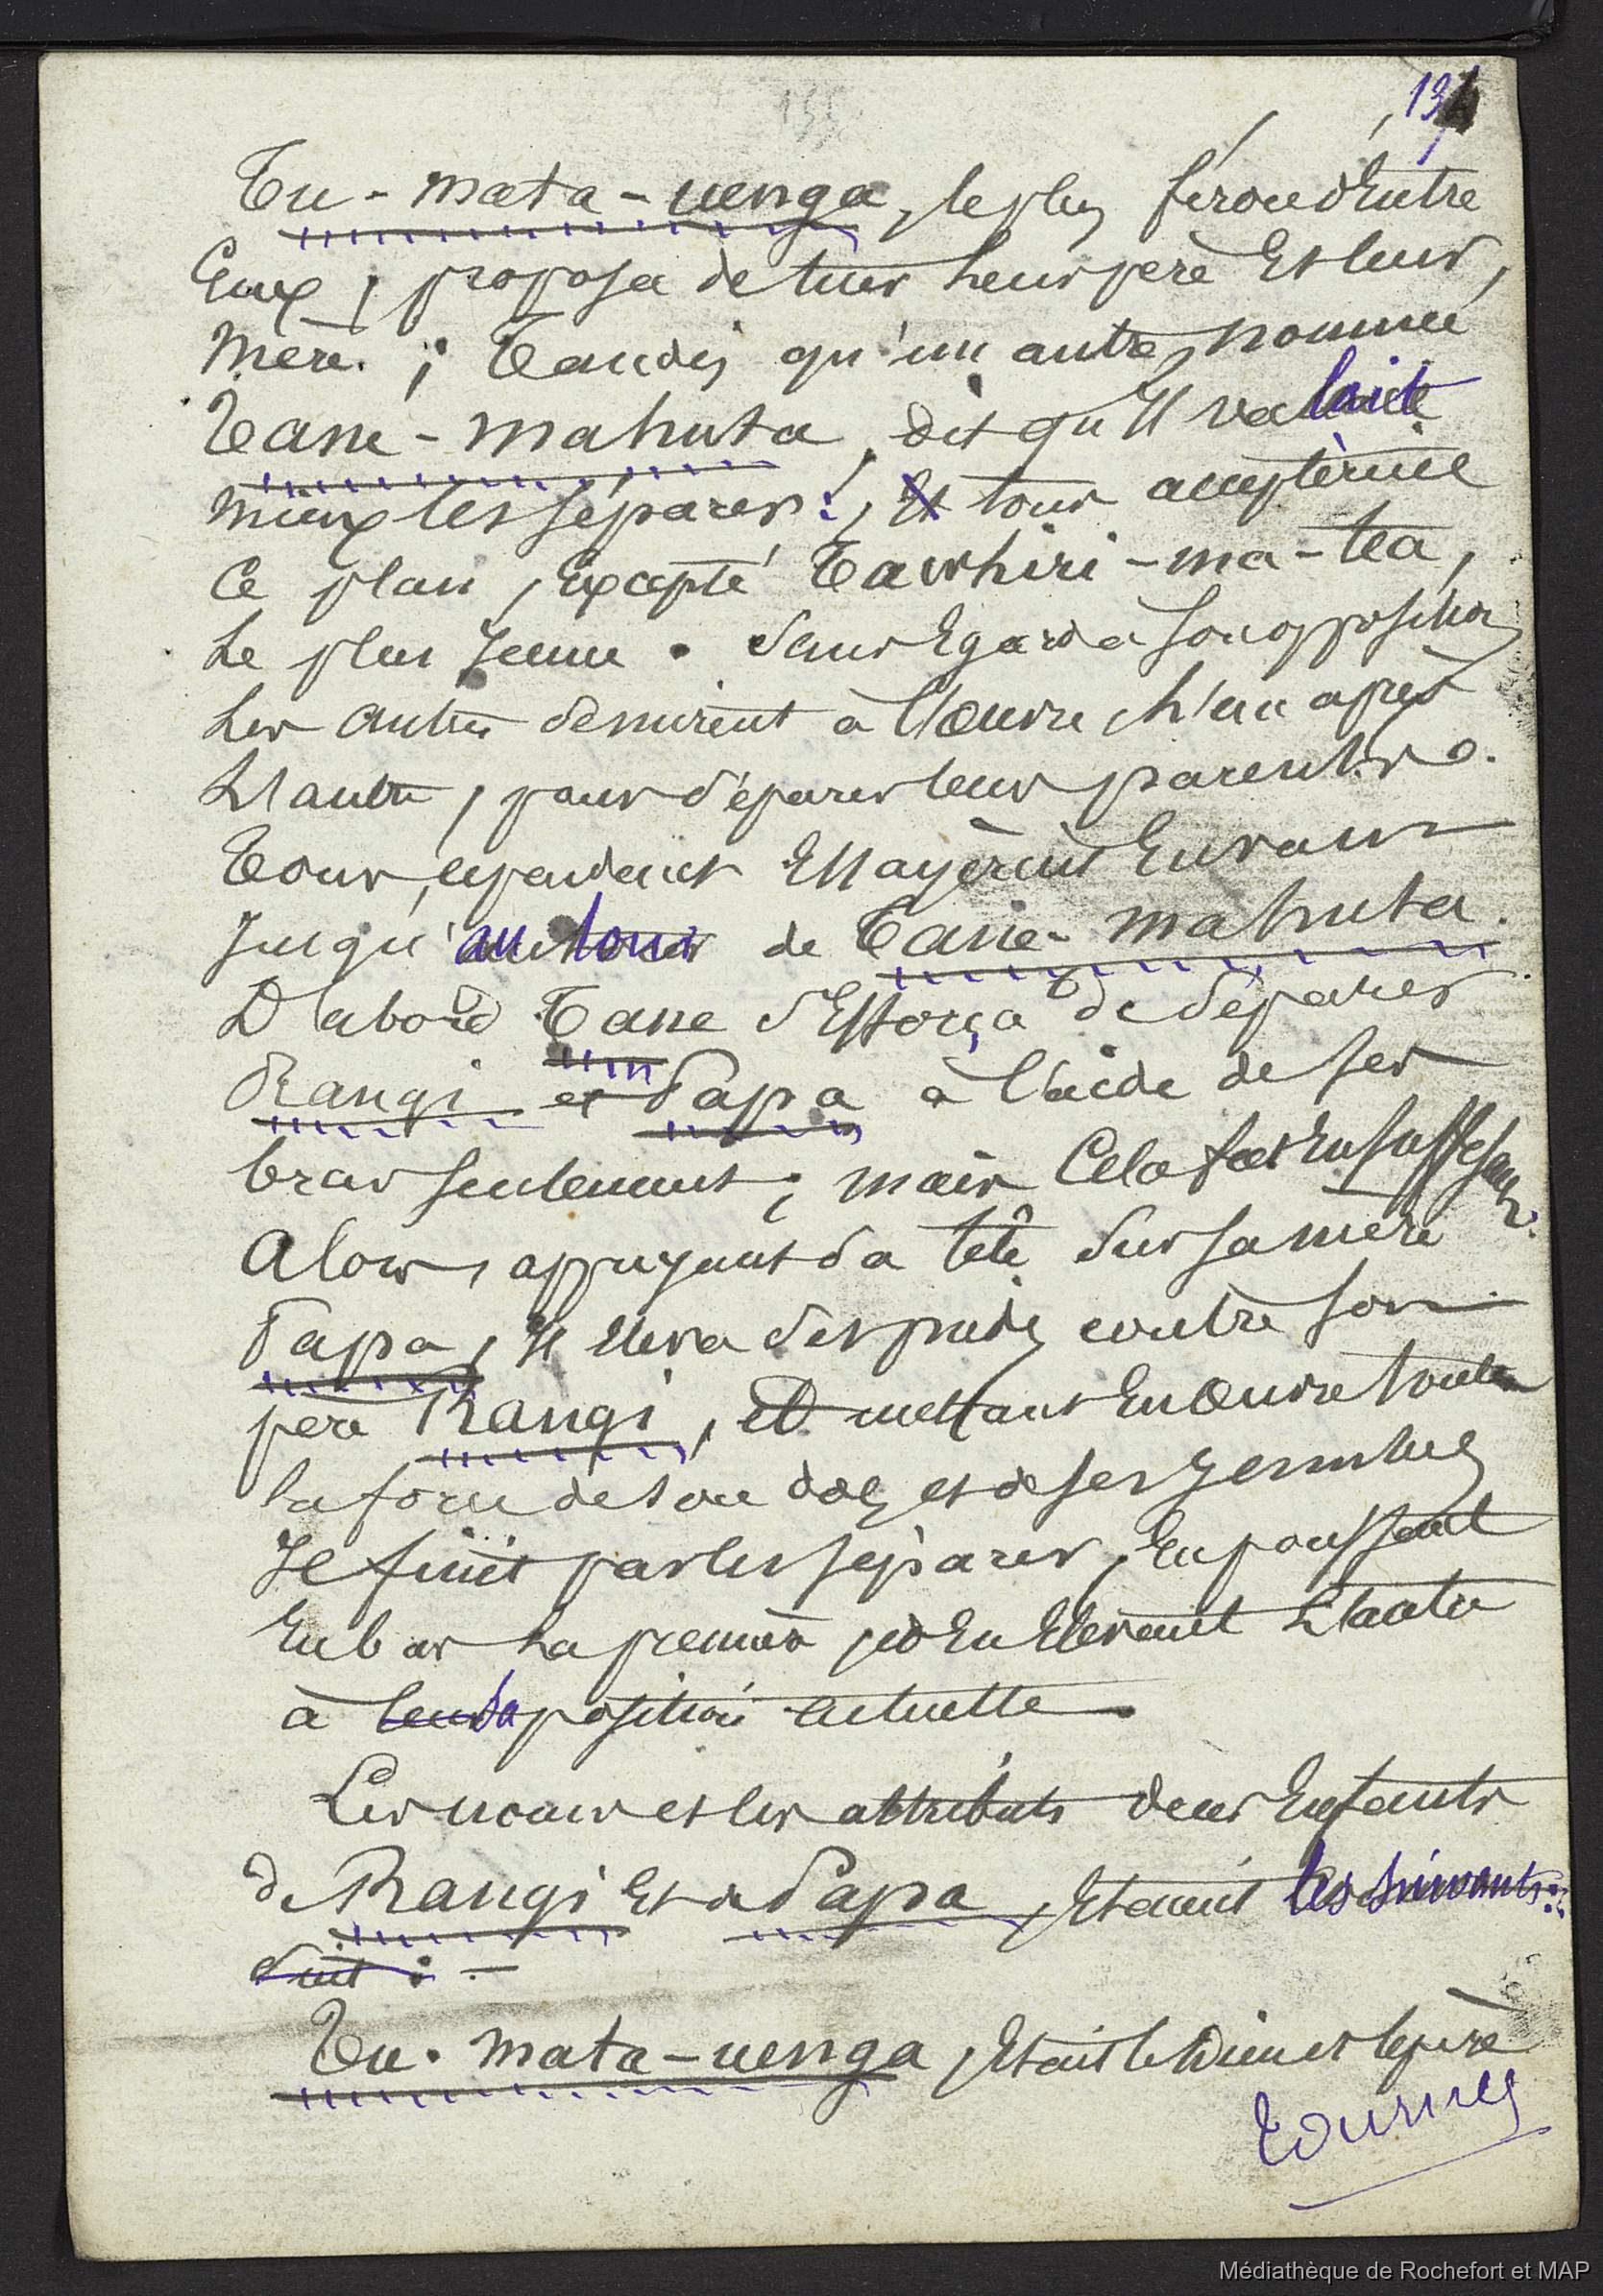 134
135
Tu-mata-uenga, le plus féroce d'Entre
Eux, proposa de tuer Leur père Et leur
Mère. ; Tandis qu'un autre, nommé
Tane-mahuta, dit qu'Il valait
mieux les séparer ; Et tous acceptèrent
Ce plan, Excepté Tawhiri-ma-tea,
Le plus Jeune. Sans Egard à son opposition
Les autres se mirent à l'Oeuvre, L'un après
L'autre, pour séparer leurs parents.
Tous, cependant Essayèrent En vain
Jusqu'au tour de Tane-mahuta.
D'abord Tane s'Efforça de séparer
Rangi et Papa à l'aide de ses
bras seulement ; mais Cela fut Insuffisant.
Alors, appuyant sa tête sur sa mère
Papa, Il éleva ses pieds contre son
père Rangi, Et mettant En Oeuvre toute
la force de son dos et de ses Jambes
Il finit par les séparer, En poussant
En bas La première, et En Elevant L'autre
à leur sa position actuelle.
Les noms et les attributs des Enfants
de Rangi Et de Papa, Etaient les suivants :
suit : -
Tu-mata-uenga, Etait le Dieu et le père
Tournez
Médiathèque de Rochefort et MAP